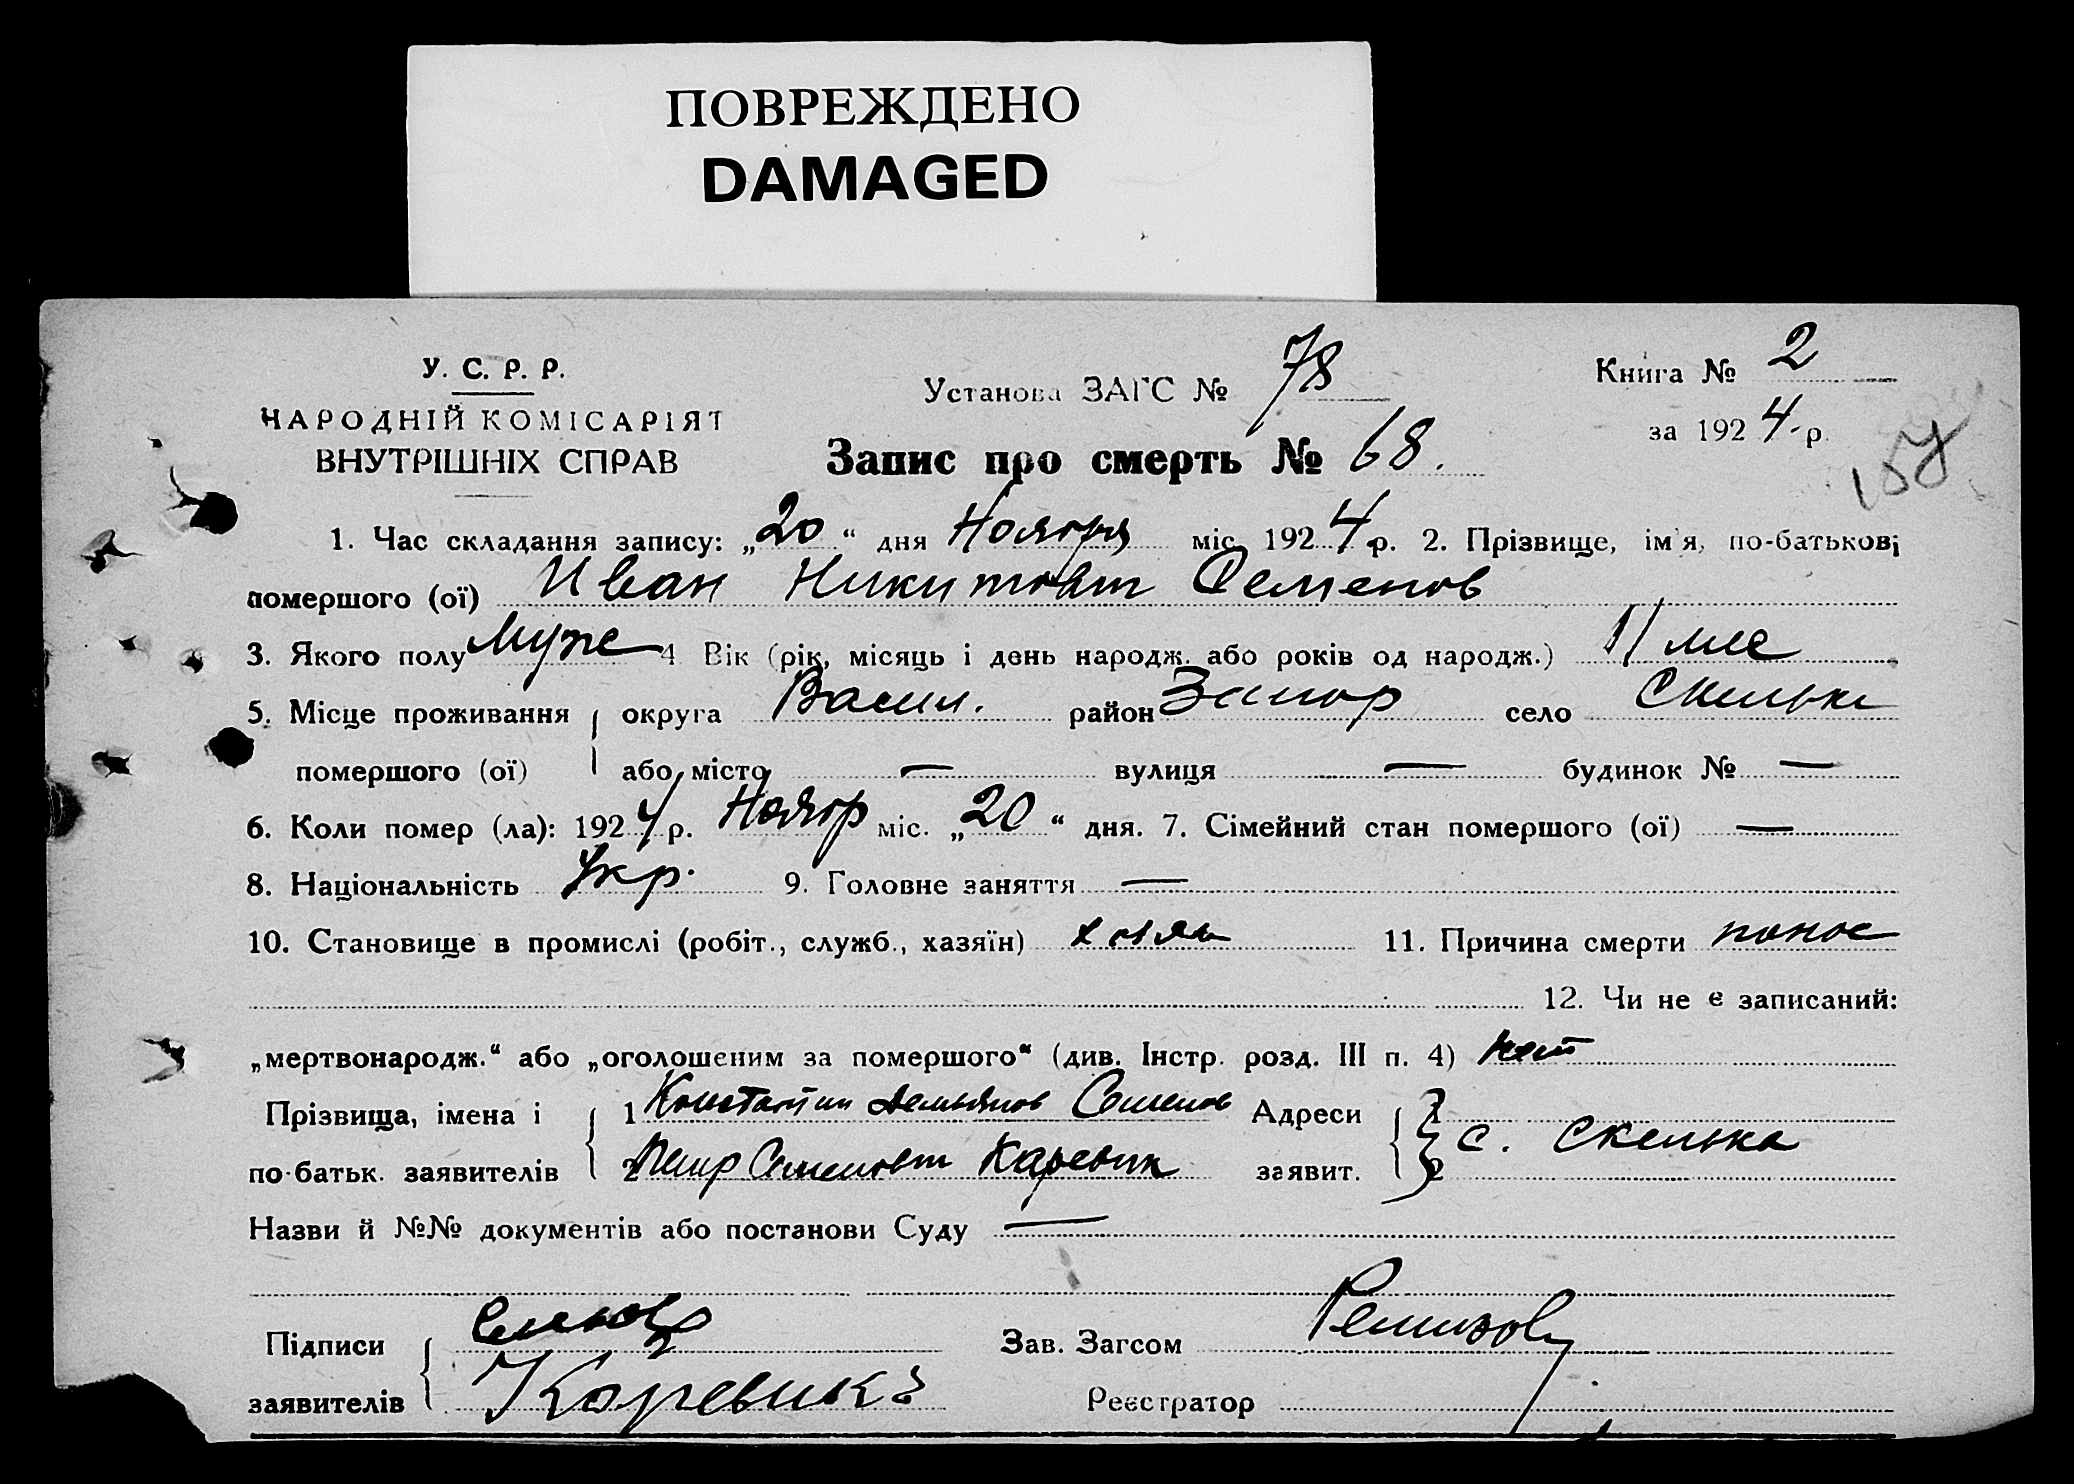 ПОВРЕЖДЕНО
DAMAGED
У. С. Р. Р.
НАРОДНІЙ КОМІСАРІЯТ
ВНУТРІШНІХ СПРАВ
Установа ЗАГС № 78
Книга № 2
за 1924 р.
157
Запис про смерть № 68.
1. Час складання запису: „20“ дня Ноября міс. 1924 р. 2. Прізвище, ім'я, по-батькові
помершого (ої) Иван Никитовт Семенов
3. Якого полу Муже 4 Вік (рік, місяць і день народж. або років од народж.) 11 мес
5. Місце проживання округа Васил. район Запор село Скельки
помершого (ої) або місто — вулиця — будинок № —
6. Коли помер (ла): 1924 р.Ноябр міс. „20“ дня. 7. Сімейний стан помершого (ої) —
8. Національність Укр. 9. Головне заняття —
10. Становище в промислі (робіт., служб., хазяїн) 11. Причина смерти понос
12. Чи не є записаний:
„мертвонародж.“ або „оголошеним за помершого“ (див. Інстр. розд. III п. 4) нет
Прізвища, імена і 1 Константин Демьянов Семенов Адреси 1
по-батьк. заявителів 2 Петр Семеновт Каревик заявит. 2 с. Скелька
Назви й №№ документів або постанови Суду —
Підписи Зав. Загсом Ремизов
заявителів Каревикъ Реєстратор